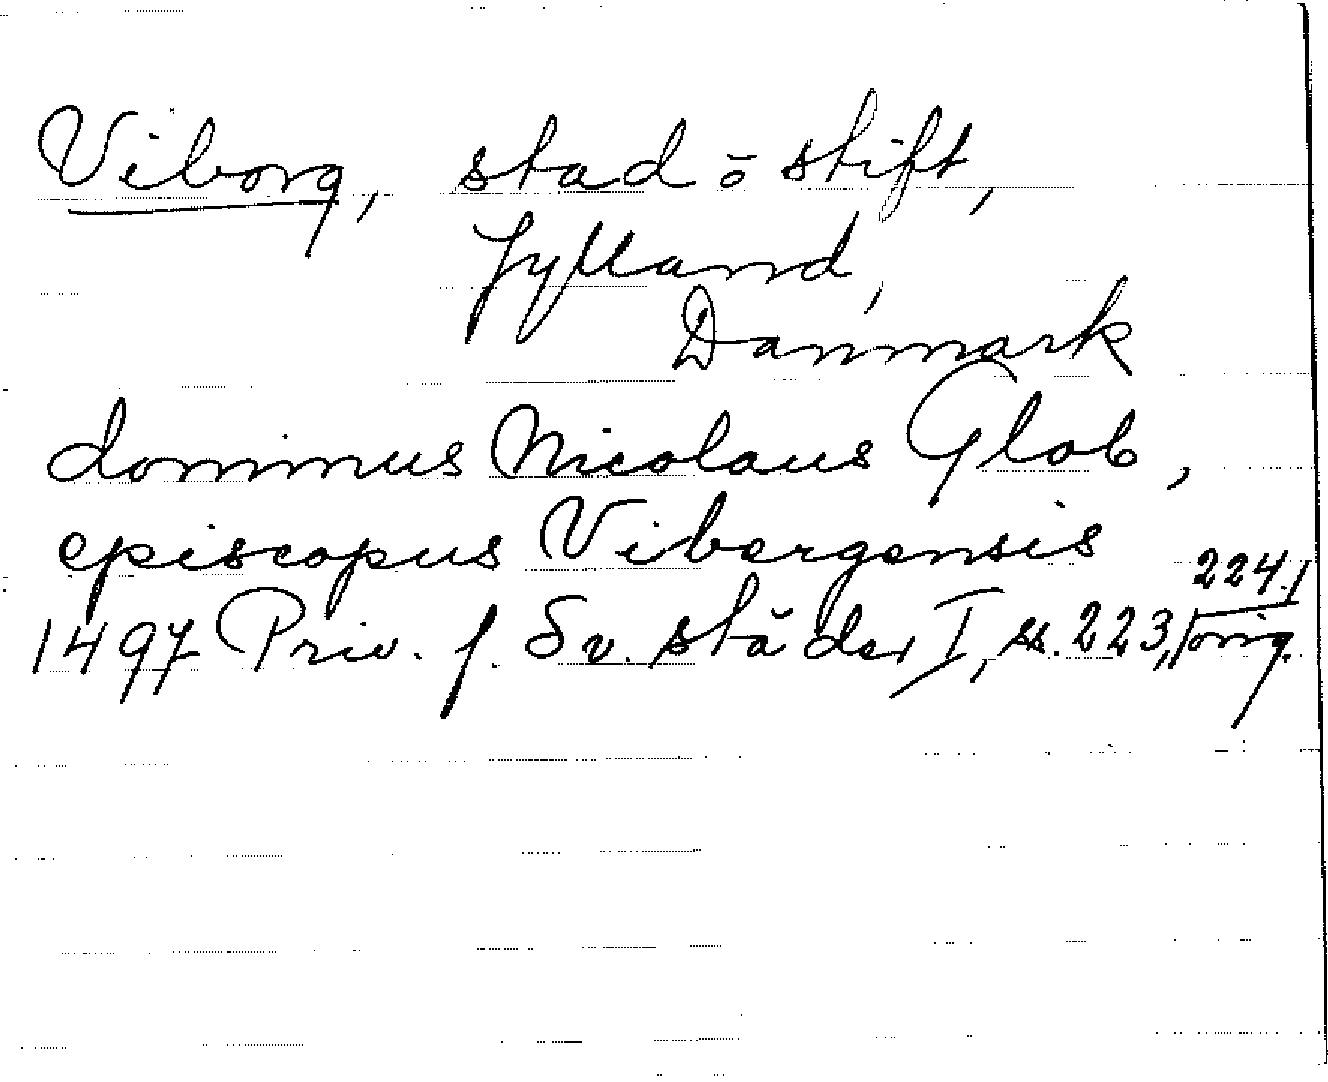 Viborg, stad ō stift,
Jylland,
Danmark
dominus Nicolaus Glob,
episcopus Vibergensis
1497 Priv. f. Sv. städer I, ss. 223, 224.
orig.